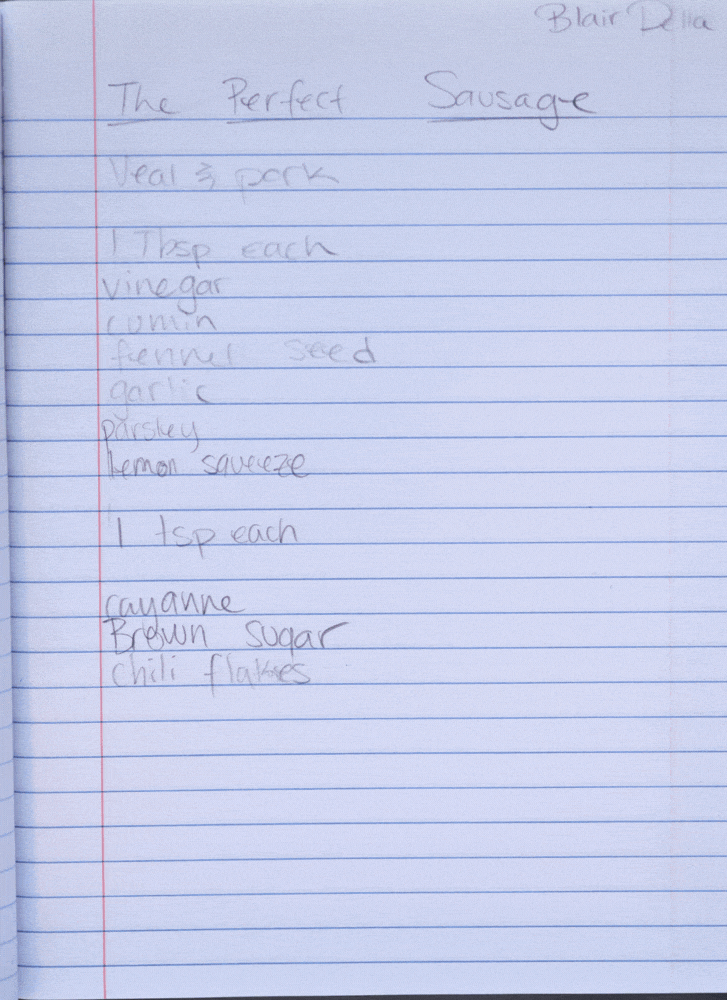 Blair Della
The Perfect Sausage
Veal & pork
1 Tbsp each
vinegar
cumin
fennel seed
garlic
parsley
Lemon squeeze
1 tsp each
cayanne
Brown sugar
chili flakes